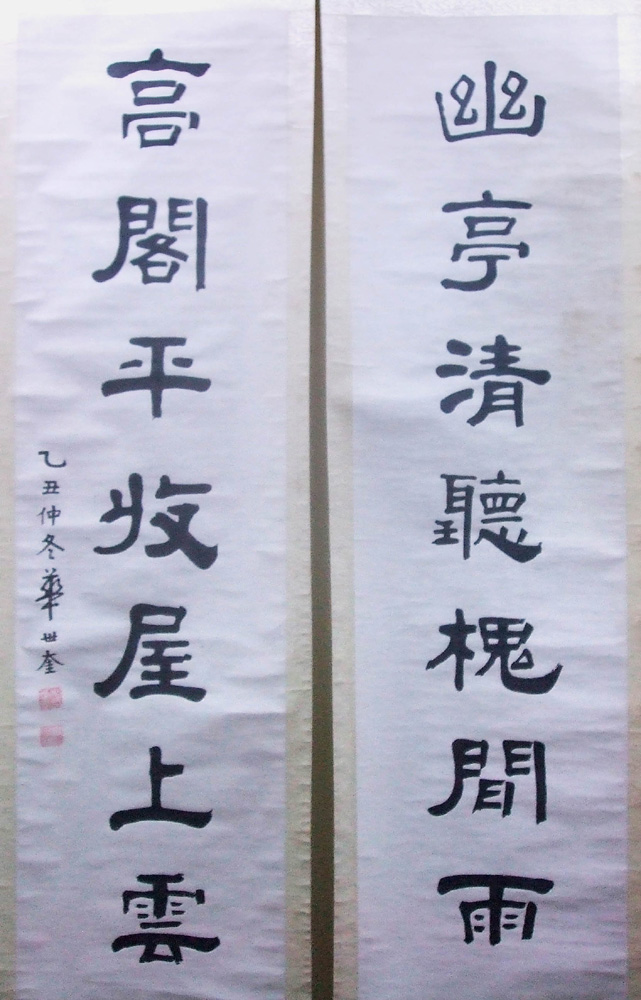 幽亭清聽槐間雨
高閣平收屋上雲
乙丑仲冬華世奎